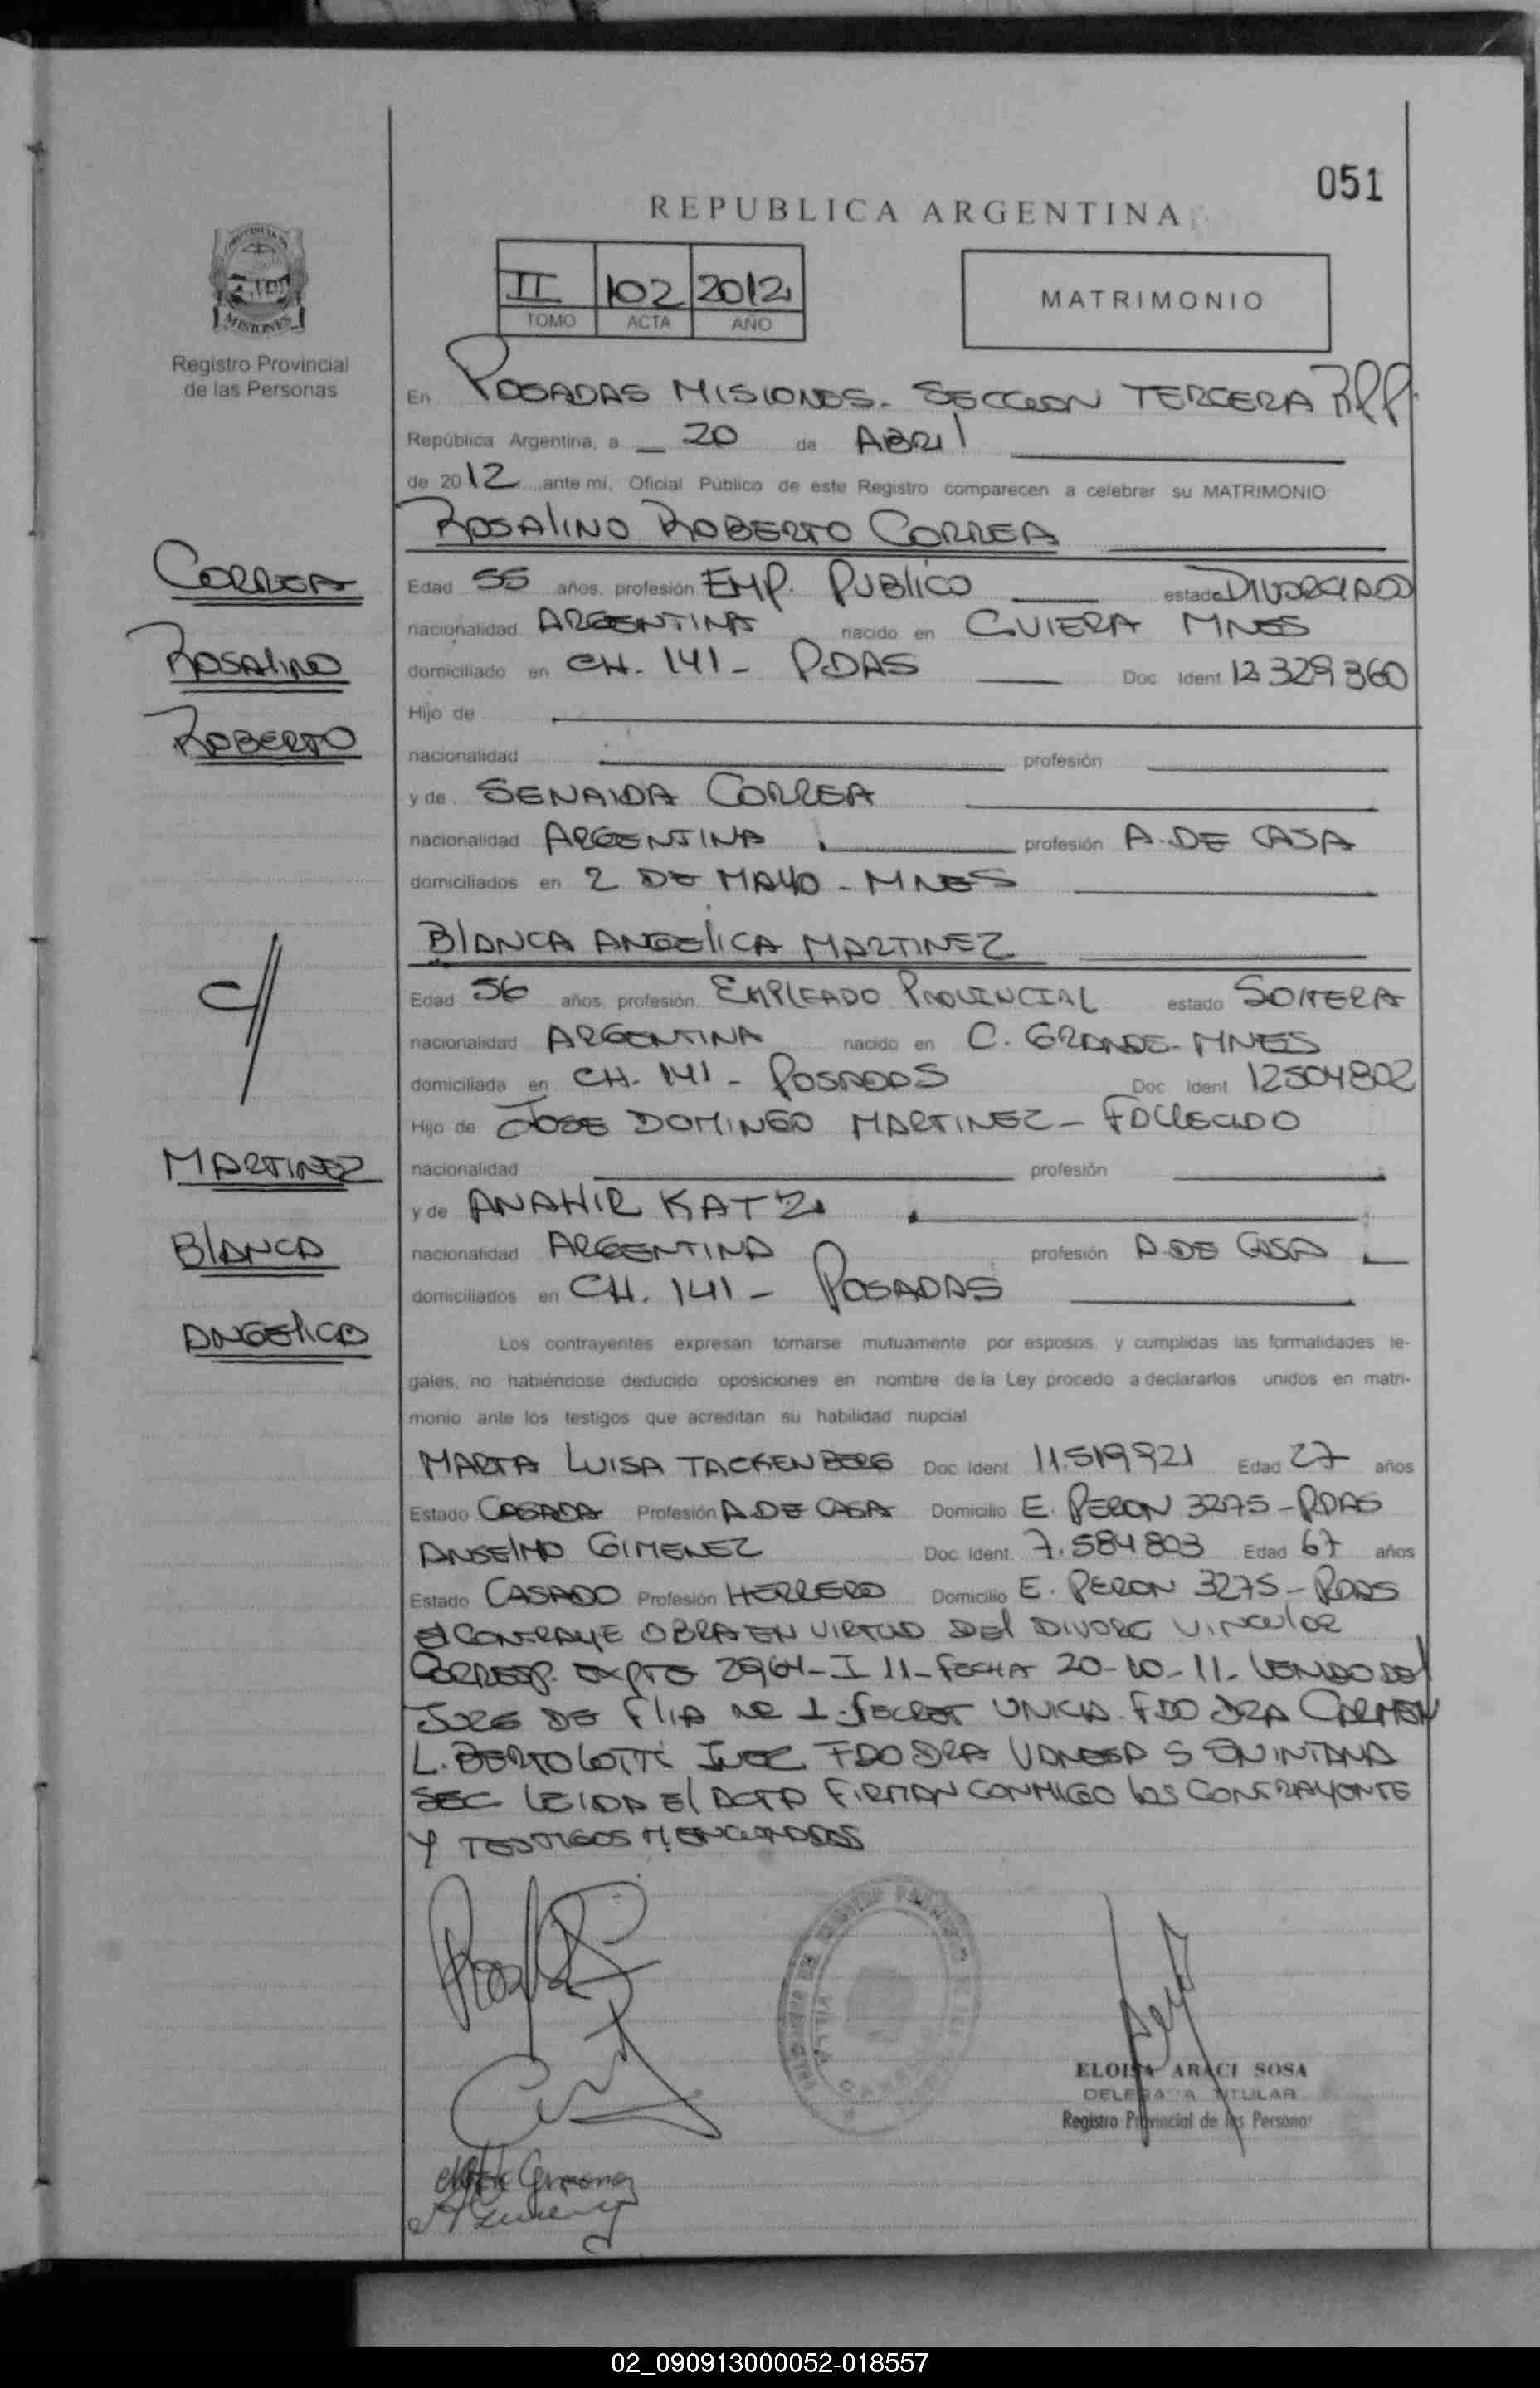 051
REPUBLICA ARGENTINA
PROVINCIA DE
MISIONES
Registro Provincial
de las Personas
II 102 2012
TOMO ACTA AÑO
MATRIMONIO
En POSADAS MISIONES. SECCION TERCERA RPP.
República Argentina, a 20 de ABRIL
de 2012 ante mí, Oficial Público de este Registro comparecen a celebrar su MATRIMONIO:
ROSALINO ROBERTO CORREA
CORREA
Edad 55 años, profesión EMP. PUBLICO estado DIVORCIADO
nacionalidad ARGENTINA nacido en GUIERA MNES
ROSALINO
domiciliado en CH. 141 - PDAS Doc Ident 12329360
Hijo de
ROBERTO
nacionalidad profesión
y de SENAIDA CORREA
nacionalidad ARGENTINA profesión A. DE CASA
domiciliados en 2 DE MAYO - MNES
BLANCA ANGELICA MARTINEZ
C/
Edad 56 años, profesión EMPLEADO PROVINCIAL estado SOLTERA
nacionalidad ARGENTINA nacido en C. GRANDE - MNES
domiciliada en CH. 141 - POSADAS Doc Ident 12504802
Hijo de JOSE DOMINGO MARTINEZ - FALLECIDO
MARTINEZ
nacionalidad profesión
y de ANAHIR KATZ
BLANCA
nacionalidad ARGENTINA profesión A. DE CASA
domiciliados en CH. 141 - POSADAS
ANGELICA
Los contrayentes expresan tomarse mutuamente por esposos, y cumplidas las formalidades le-
gales, no habiéndose deducido oposiciones en nombre de la Ley procedo a declararlos unidos en matri-
monio ante los testigos que acreditan su habilidad nupcial
MARTA LUISA TACKENBERG Doc Ident 11.519921 Edad 27 años
Estado CASADA Profesión A DE CASA Domicilio E. PERON 3275 - PDAS
ANSELMO GIMENEZ Doc Ident. 7.584803 Edad 67 años
Estado CASADO Profesión HERRERO Domicilio E. PERON 3275 - PDAS
El CONTRAYE OBRA EN VIRTUD DEL DIVORC VINCULAR
CORRESP. EXPTE 2964 - I 11 - FECHA 20-10-11 - VENIDO DEL
JUZG DE FLIA NR 1 - SECRET UNICA FDO DRA CARMEN
L. BERTOLOTTI JUEZ FDO DRA VANESA S QUINTANA
SEC LEIDA El ACTA FIRMAN CONMIGO los CONTRAYENTE
Y TESTIGOS MENCIONADOS
ELOISA ARACI SOSA
DELEGADA TITULAR
Registro Provincial de las Personas
02_090913000052-018557